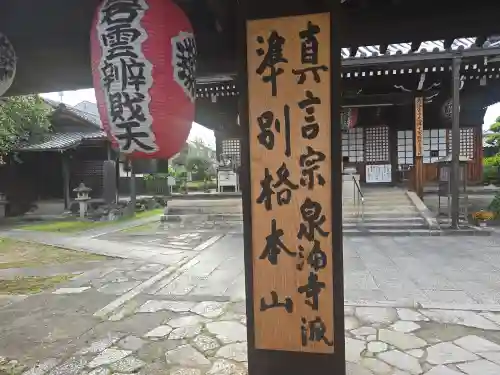 真言宗泉涌寺派
準別格本山
岩雲辨財天